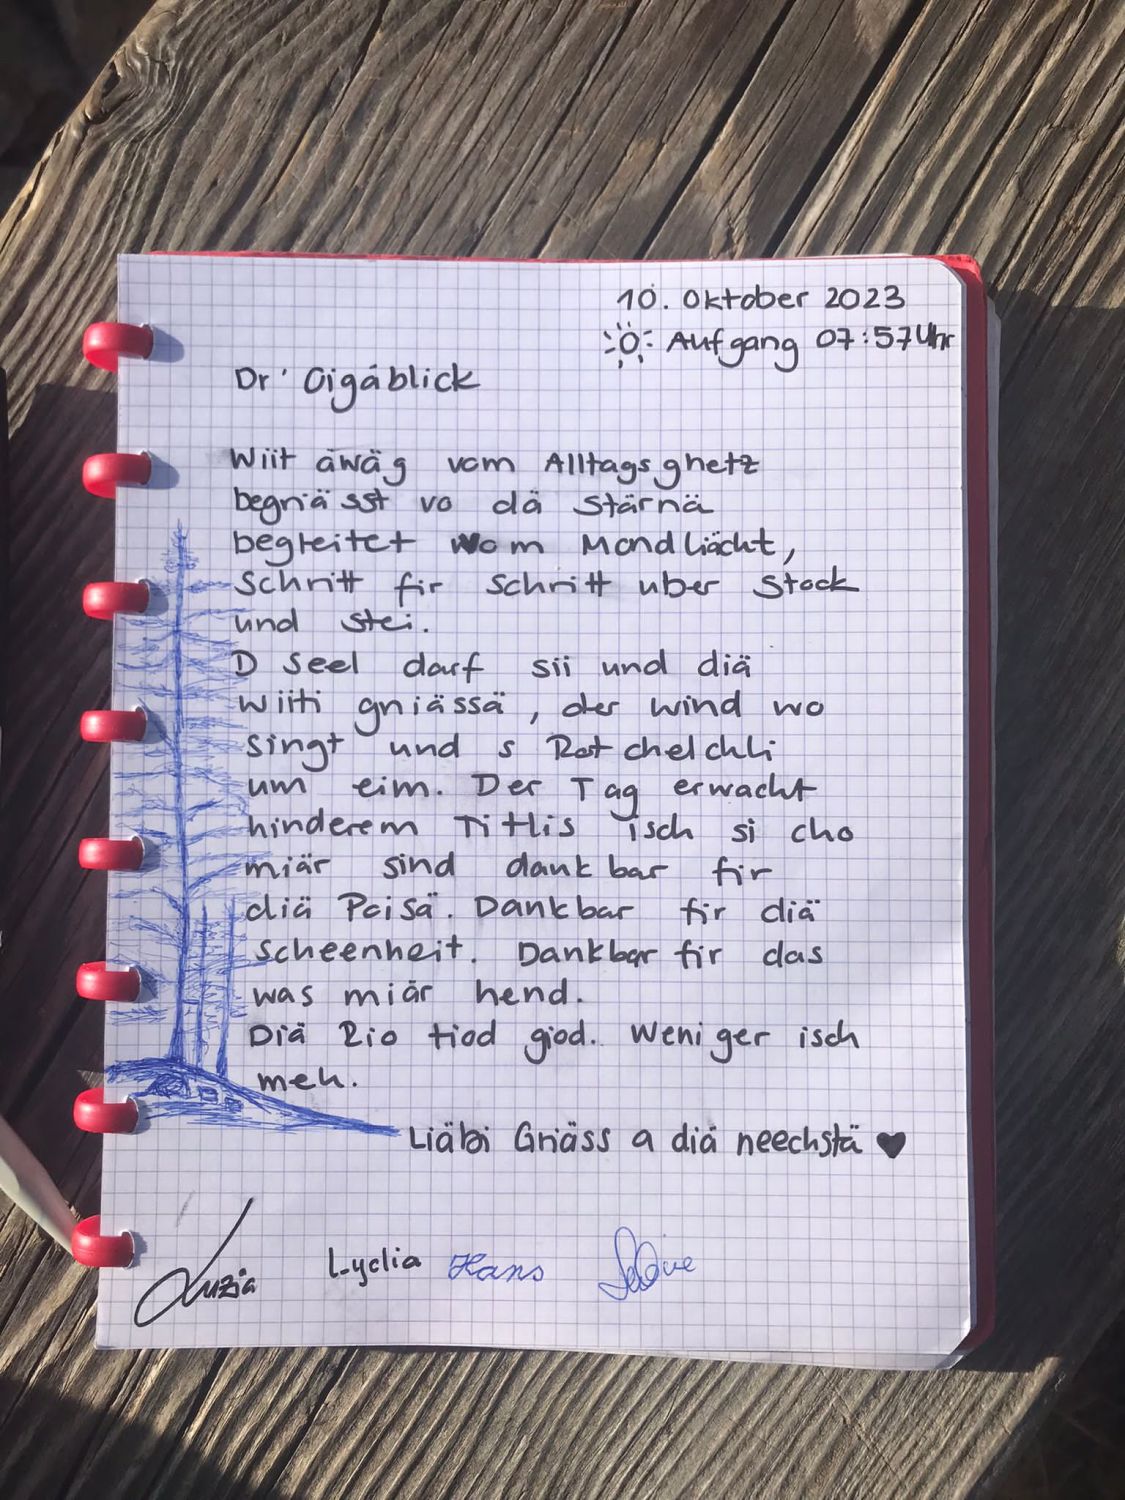 10. Oktober 2023
Aufgang 07:57 Uhr
Dr' Oigäblick
Wiit äwäg vom Alltagsghetz
begriässt vo dä Stärnä
begleitet vom Mondliächt,
Schritt fir Schritt uber Stock
und stei.
D Seel darf sii und diä
Wiiti gniässä, der wind wo
singt und s
um eim. Der Tag erwacht
hinderem Titlis isch si cho
miär sind dankbar fir
diä Poisä. Dankbar fir diä
Scheenheit. Dankbar fir das
was miär hend.
Diä Rio tiod giod. Weniger isch
meh.
Liäbi Griäss a diä neechstä ♥
Luzia Lydia Hans